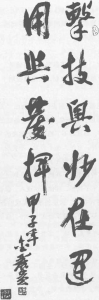 擊技奧妙在運
用與發揮
甲子年